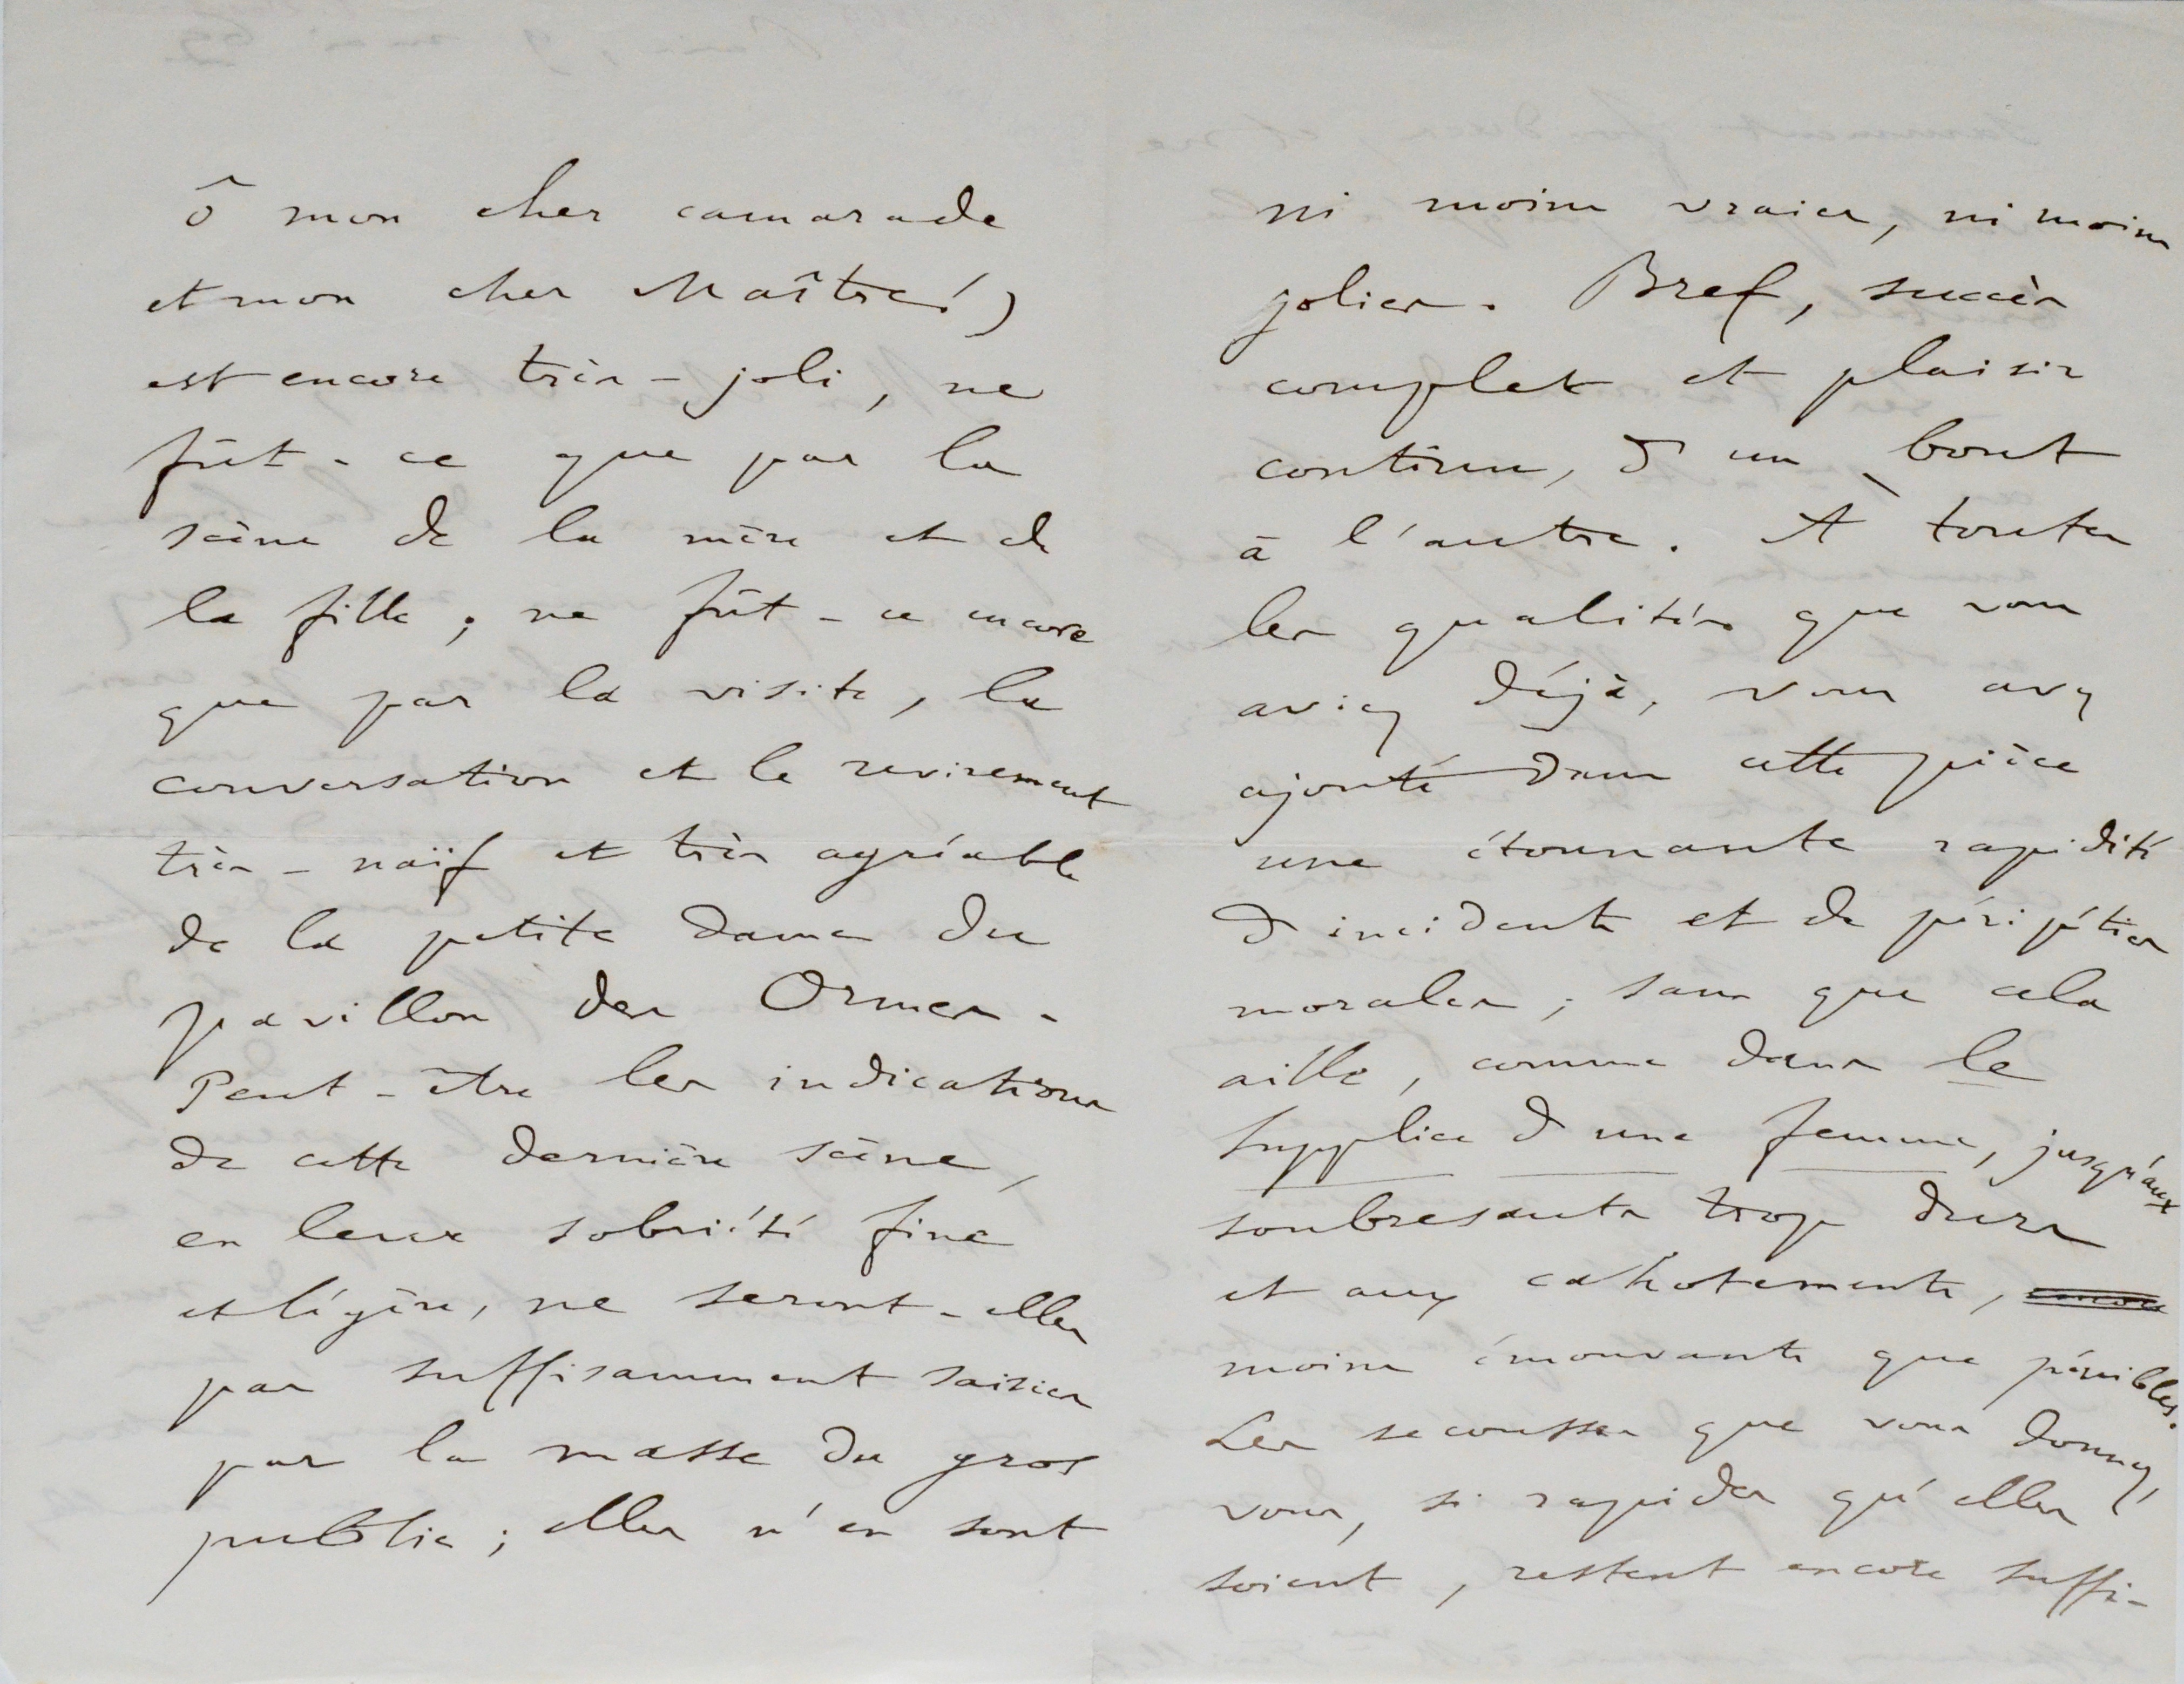 ô mon cher camarade
et mon cher Maître!)
est encore très-joli, ne
fût-ce que par la
scène de la mère et de
la fille ; ne fût-ce encore
que par la visite, la
conversation et le revirement
très-naïf et très agréable
de la petite dame du
pavillon des Ormes.
Peut-être les indications
de cette dernière scène,
en leur sobriété fine
et légère, ne seront-elles
pas suffisamment saisies
par la masse du gros
public ; elles n'en sont
ni moins vraies, ni moins
jolies. Bref, succès
complet et plaisir
continu, d'un bout
à l'autre. À toutes
les qualités que vous
aviez déjà, vous avez
ajouté dans cette pièce
une étonnante rapidité
d'incidents et de péripéties
morales ; sans que cela
aille, comme dans le
Supplice d'une femme, jusqu'aux
soubresauts trop durs
et aux cahotements,
moins émouvants que pénibles.
Les secousses que vous donnez,
vous, si rapides qu'elles
soient, restent encore suffi-